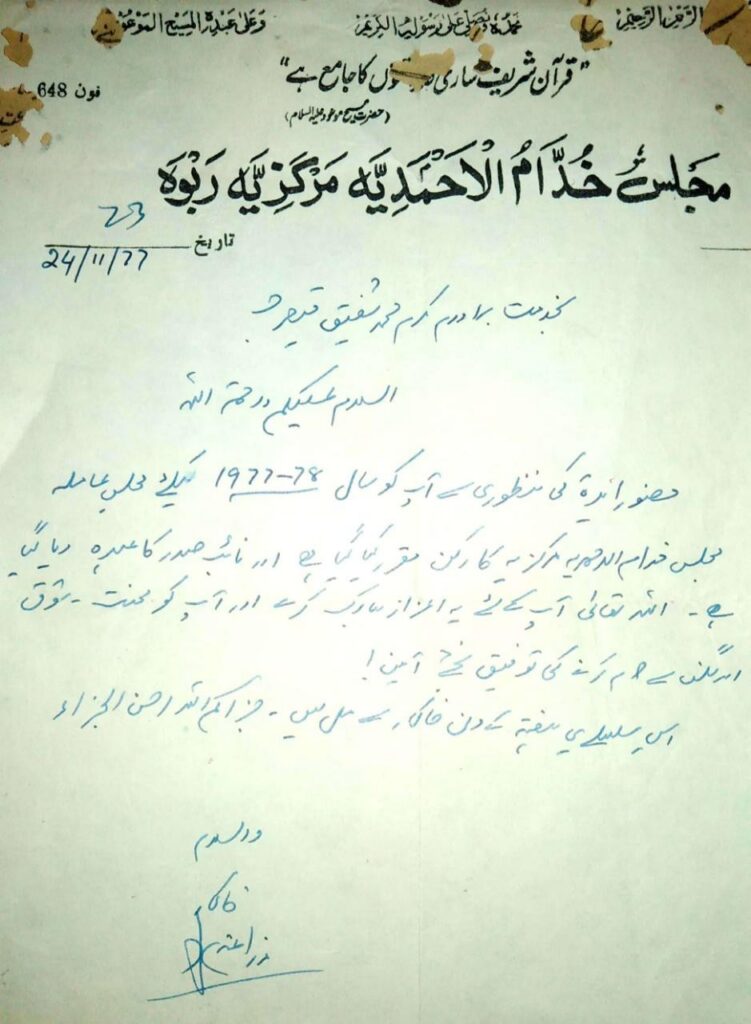 الرَّحْمٰنِ الرَّحِيْمِ نحمدہ ونصلی علیٰ رسولہ الکریم وَعَلیٰ عَبْدِهِ الْمَسِیْحِ الْمَوْعُوْدِ
"قرآن شریف ساری کا جامع ہے"
(حضرت مسیح موعود علیہ السلام)
فون 648
مجلس خُدَّامُ الْاَحْمَدِيَّه مَرْكَزِيَّه رَبْوَه
23
تاریخ 24/11/77
بخدمت برادرم مکرم محمد شفیق قیصر صاحب
السلام علیکم ورحمۃ اللہ
حضور ایدہ کی منظوری سے آپ کو سال 1977-78 کیلئے مجلس عاملہ
مجلس خدام الاحمدیہ مرکزیہ کا رکن مقرر کیا گیا ہے اور نائب صدر کا عہدہ دیا گیا
ہے۔ اللہ تعالیٰ آپ کے لئے یہ اعزاز مبارک کرے اور آپ کو محنت ۔ شوق
اور لگن سے کام کرنے کی توفیق بخشے آمین!
اس سلسلے میں ہفتہ کے دن خاکسار سے مل لیں۔ جزاکم اللہ احسن الجزاء
والسلام
خاکسار